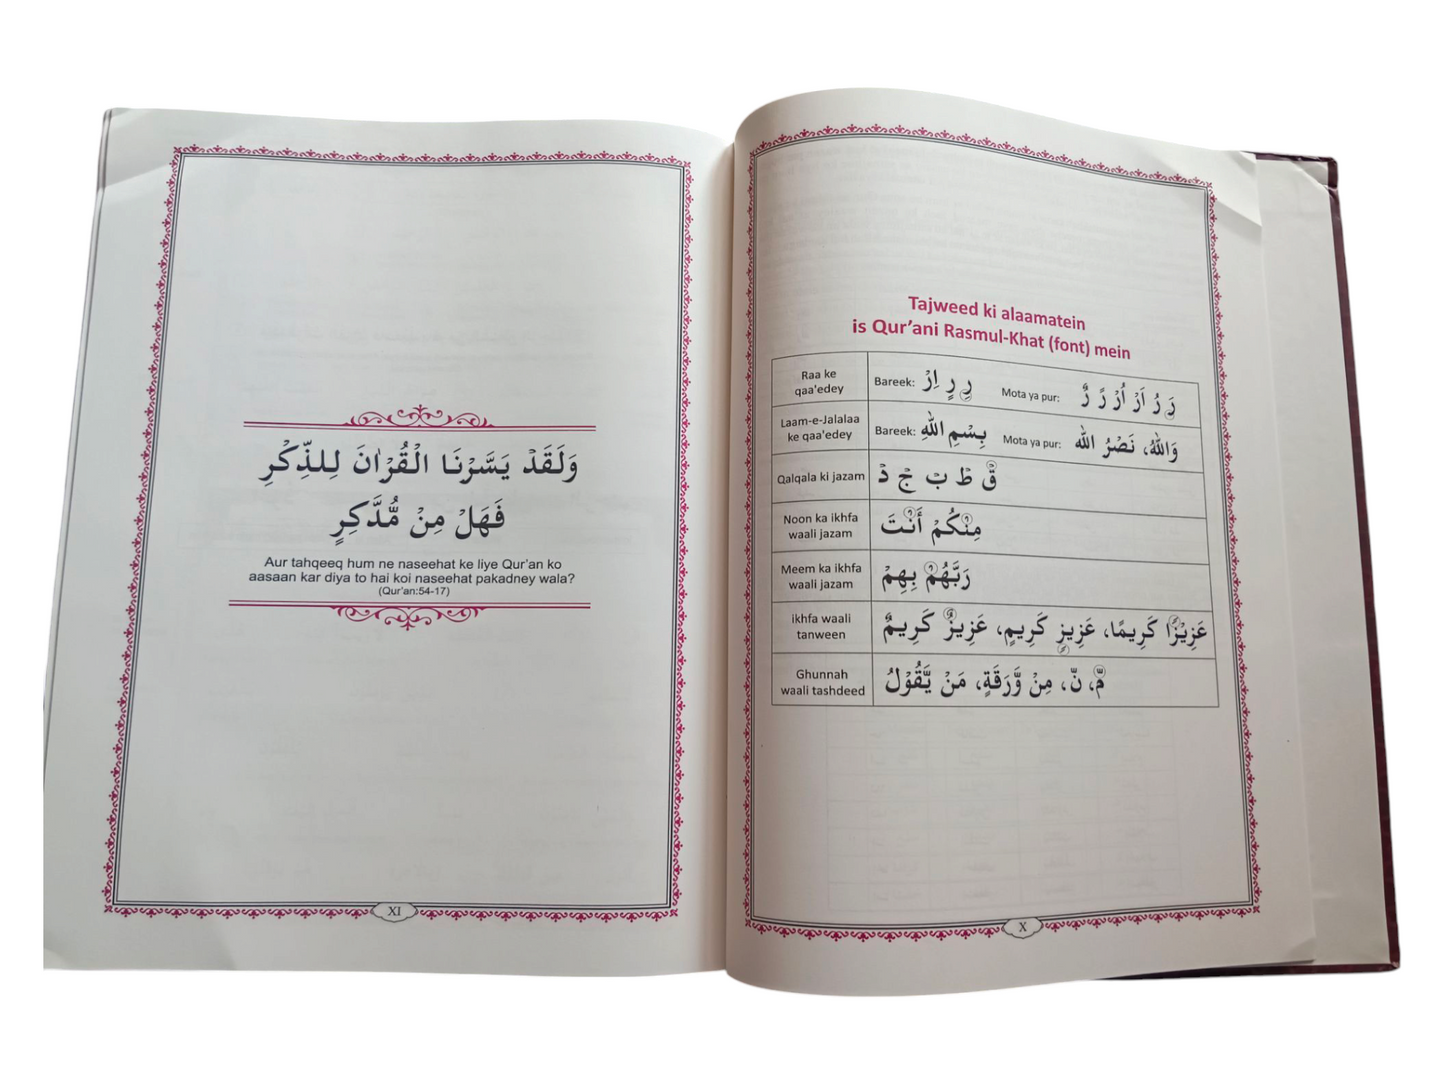 Tajweed ki alaamatein
is Qur'ani Rasmul-Khat (font) mein
Raa ke
qaa'edey
Bareek: رِ رٍ اِرْ
Mota ya pur: رَ رُ اَرْ اُرْ رً رٌ
Laam-e-Jalalaa
ke qaa'edey
Bareek: بِسْمِ اللهِ
Mota ya pur: وَاللهُ، نَصْرُ الله
Qalqala ki jazam
قْ طْ بْ جْ دْ
Noon ka ikhfa
waali jazam
مِنْكُمْ أَنْتَ
Meem ka ikhfa
waali jazam
رَبَّهُمْ بِهِمْ
ikhfa waali
tanween
عَزِيْزًا كَرِيمًا، عَزِيزٍ كَرِيمٍ، عَزِيزٌ كَرِيمٌ
Ghunnah
waali tashdeed
مّ، نّ، مِنْ وَّرَقَةٍ، مَنْ يَّقُوْلُ
X
وَلَقَدْ يَسَّرْنَا الْقُرْانَ لِلذِّكْرِ
فَهَلْ مِنْ مُّدَّكِرٍ
Aur tahqeeq hum ne naseehat ke liye Qur'an ko
aasaan kar diya to hai koi naseehat pakadney wala?
(Qur'an:54-17)
XI